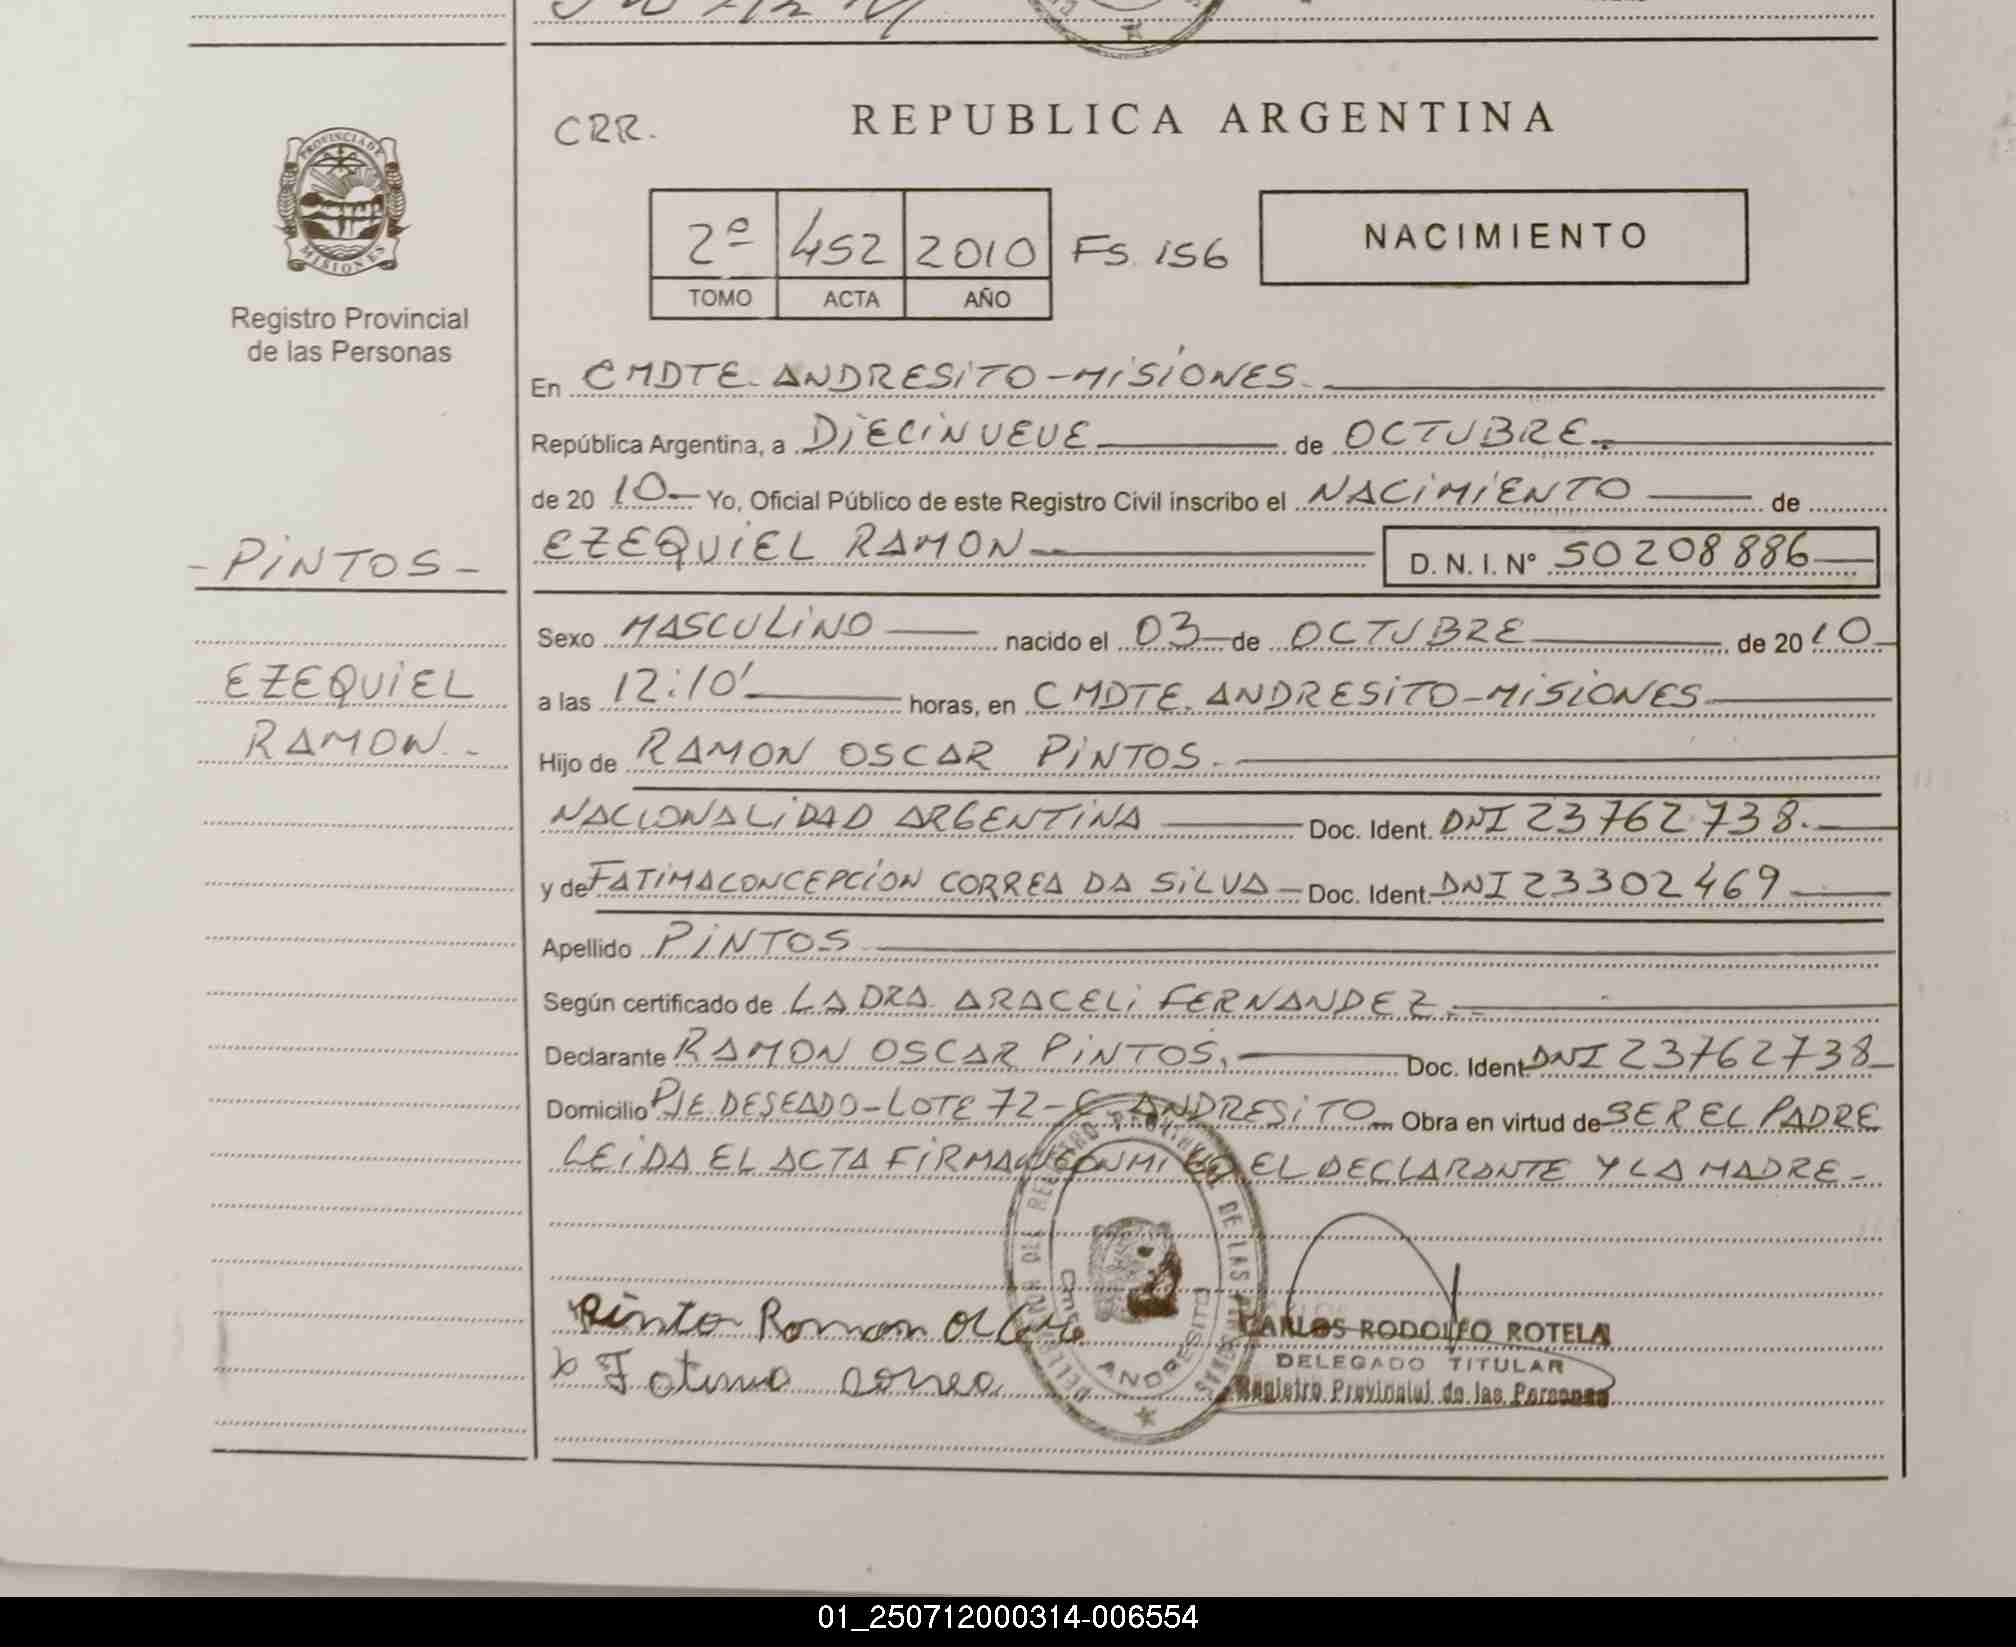 PROVINCIA DE
MISIONES
Registro Provincial
de las Personas
- PINTOS -
EZEQUIEL
RAMON -
CRR.
REPUBLICA ARGENTINA
2º 452 2010 FS. 156
TOMO ACTA AÑO
NACIMIENTO
En CMDTE. ANDRESITO - MISIONES.
República Argentina, a DIECINUEVE de OCTUBRE.
de 20 10 Yo, Oficial Público de este Registro Civil inscribo el NACIMIENTO de
EZEQUIEL RAMON D. N. I. Nº 50208886
Sexo MASCULINO nacido el 03 de OCTUBRE de 20 10
a las 12:10' horas, en CMDTE. ANDRESITO - MISIONES
Hijo de RAMON OSCAR PINTOS.
NACIONALIDAD ARGENTINA Doc. Ident. DNI 23762738.
y de FATIMA CONCEPCION CORREA DA SILVA Doc. Ident. DNI 23302469
Apellido PINTOS
Según certificado de LA DRA. ARACELI FERNANDEZ.
Declarante RAMON OSCAR PINTOS. Doc. Ident. DNI 23762738
Domicilio PJE. DESEADO - LOTE 72 - C. ANDRESITO Obra en virtud de SER EL PADRE
LEIDA EL ACTA FIRMAN CONMIGO EL DECLARANTE Y LA MADRE -
Pinto Ramon
x Fatima correa
DEL REGISTRO DE LAS
ANDRESITO
CARLOS RODOLFO ROTELA
DELEGADO TITULAR
Registro Provincial de las Personas
01_250712000314-006554